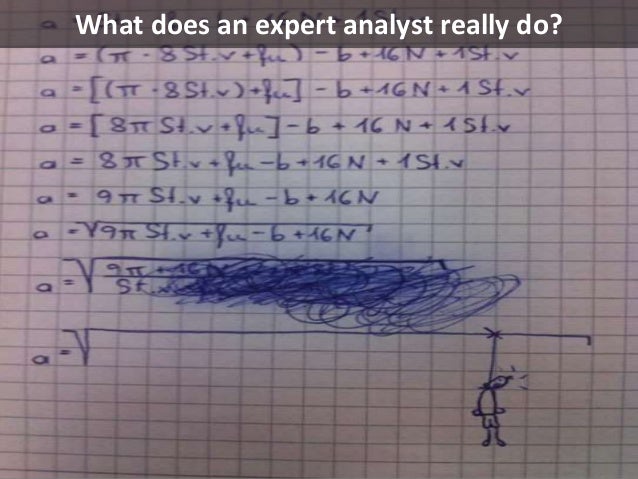 What does an expert analyst really do?
a = (π · 8 St.v + fu) - b + 16 N + 1 St.v
a = [(π · 8 St.v) + fu] - b + 16 N + 1 St.v
a = [8π St.v + fu] - b + 16 N + 1 St.v
a = 8π St.v + fu - b + 16 N + 1 St.v
a = 9π St.v + fu - b + 16 N
a = √9π St.v + fu - b + 16 N
a = √9π + 16
St.
a = √